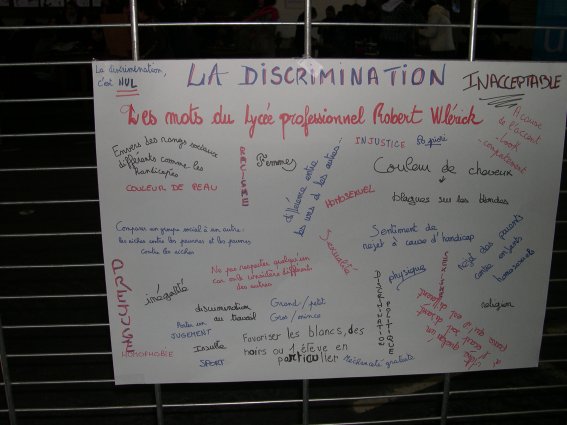 La discrimination,
c'est NUL
LA DISCRIMINATION
INACCEPTABLE
Les mots du lycée professionnel Robert Wlérick
A cause
de l'accent
- look
- comportement
Envers des rangs sociaux
différents comme les
handicapés
COULEUR DE PEAU
RACISME
Femmes
différence entre
les uns et les autres
INJUSTICE
HOMOSEXUEL
Couleur de cheveux
blagues sur les blondes
Comparer un groupe social à un autre:
les riches contre les pauvres et les pauvres
contre les riches
Sexualité
Sentiment de
rejet à cause d'handicap
rejet des parents
contre enfants
homosexuels
Ne pas respecter quelqu'un
car on le considère différents
des autres
physique
SEXISME
DISCRIMINATION
POLITIQUE
religion
inégalité
discrimination
au travail
Grand/petit
Gros/mince
Porter un
JUGEMENT
HOMOPHOBIE
Insulte
SPORT
Favoriser les blancs, des
noirs ou 1 élève en
particulier
Méchanceté gratuite